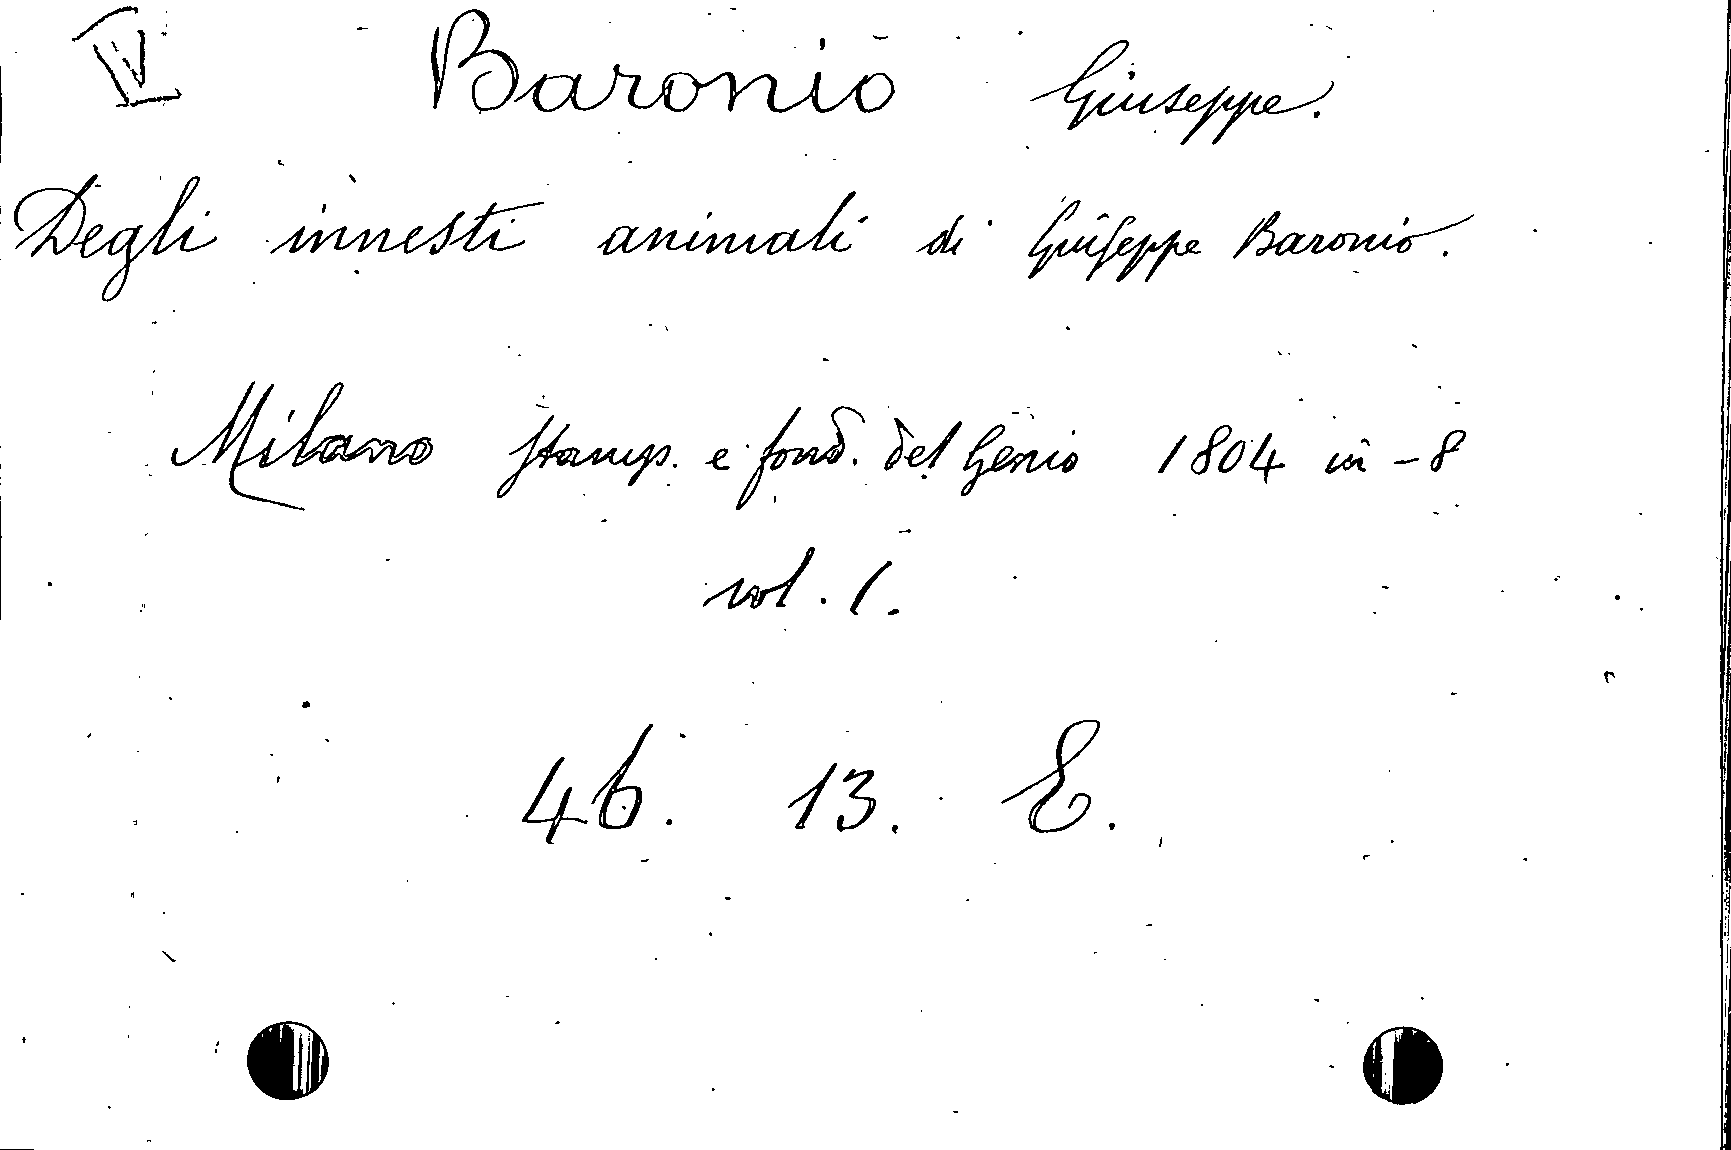 IV Baronio Giuseppe.
Degli innesti animali di Giuseppe Baronio.
Milano stamp. e fond. del Genio 1804 in-8
vol. 1.
46. 13. E.